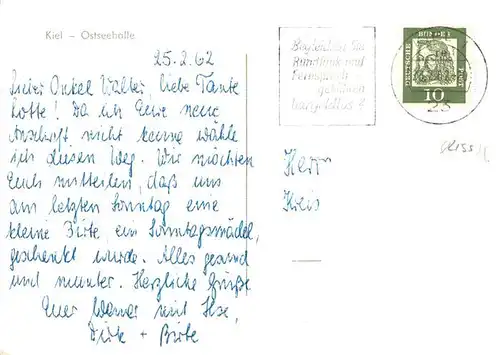 Kiel – Ostseehalle
25.2.62
Lieber Onkel Walter, liebe Tante
Lotte! Da ich Eure neue
Anschrift nicht kenne wähle
ich diesen Weg. Wir möchten
Euch mitteilen, daß uns
am letzten Sonntag eine
kleine Birte, ein Sonntagsmädel,
geschenkt wurde. Alles gesund
und munter. Herzliche Grüße
Euer Werner mit Ilse,
Dirk + Birte
Begleichen Sie
Rundfunk und
Fernseh
gebühren
bargeldlos
23
DEUTSCHE BUNDESPOST
10
Herrn
Kreis